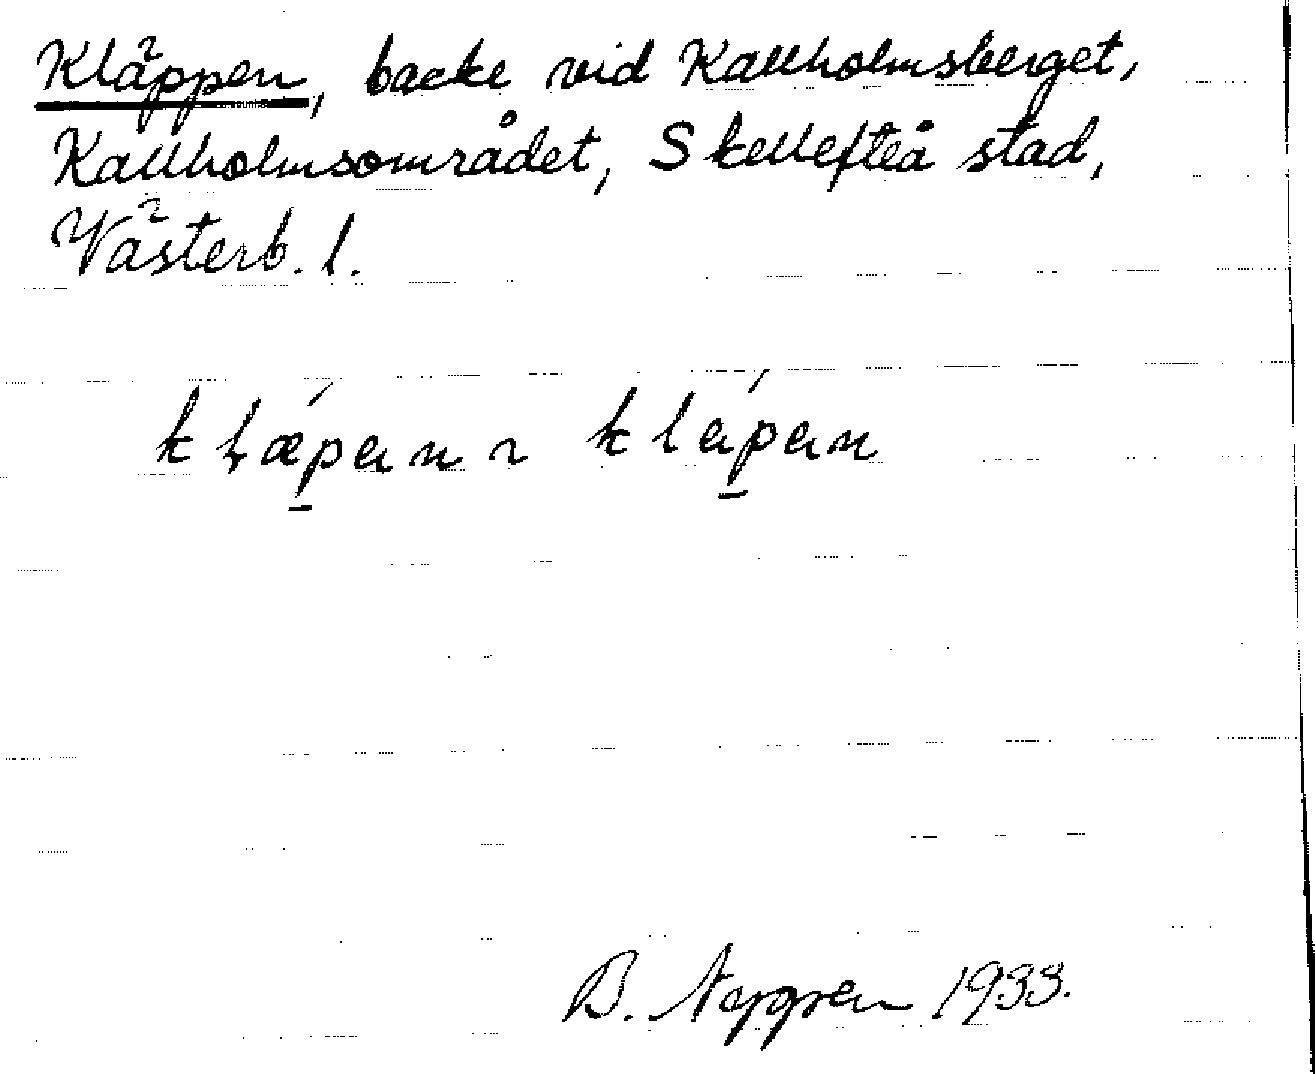 Kläppen, backe vid Kallholmsberget,
Kallholmsområdet, Skellefteå stad,
Västerb. l.
kḷæ´p̱an ~ kla´p̱an
B. 1933.